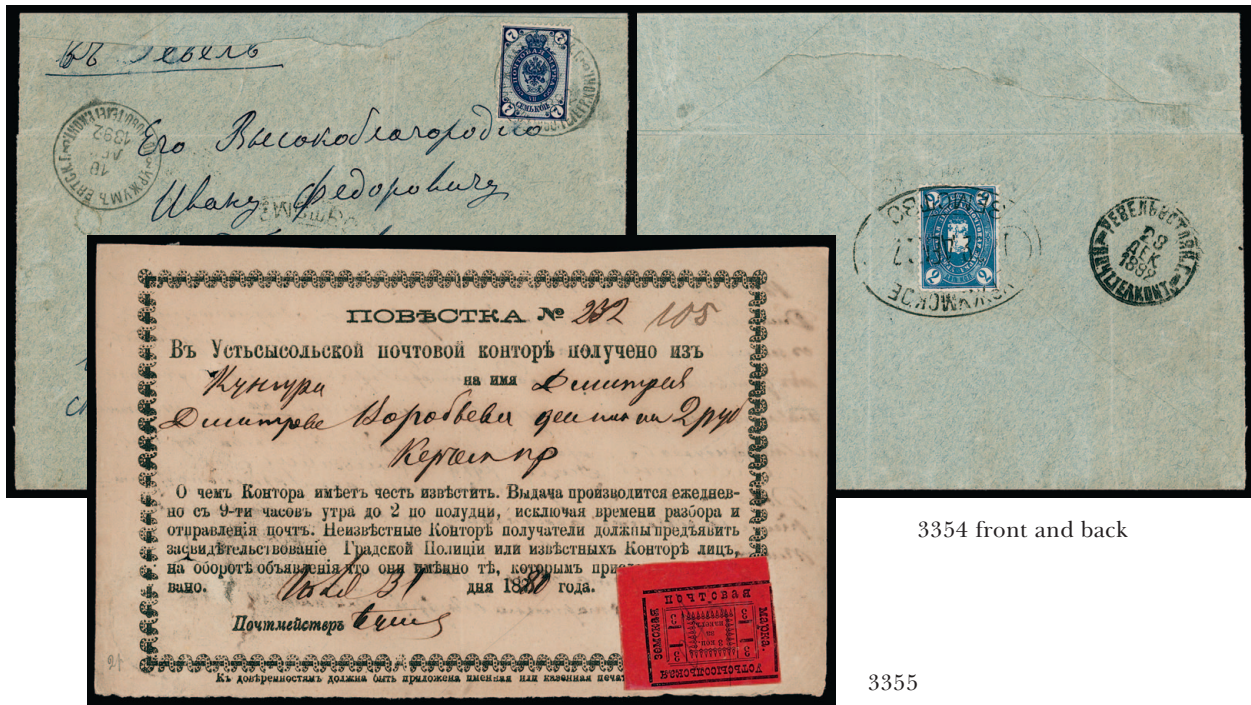 въ Ревель
7 7
ПОЧТОВАЯ МАРКА
СЕМЬ КОП.
7 7
УРЖУМЪ ВЯТСК. Г.
1892
Его Высокоблагородію
Ивану Федоровичу
7 7
7 7
УРЖУМСКОЕ
РЕВЕЛЬ ЭСТЛЯН. Г.
28
ДЕК
1892
ПОЧТ. ТЕЛ. КОНТ.
ПОВѢСТКА № 232 105
Въ Устьсысольской почтовой конторѣ получено изъ
Кунгура на имя Дмитрія
Дмитріева Коробьева 2 руб
О чемъ Контора имѣетъ честь извѣстить. Выдача производится ежеднев-
но съ 9-ти часовъ утра до 2 по полудни, исключая времени разбора и
отправленія почтъ. Неизвѣстные Конторѣ получатели должны предъявить
засвидѣтельствованіе Градской Полиціи или извѣстныхъ Конторѣ лицъ,
на оборотѣ объявленія что они именно тѣ, которымъ
вано. 31 дня 1880 года.
Почтмейстеръ
Къ довѣренностямъ должна быть приложена именная или казенная печат
УСТЬСЫСОЛЬСКАЯ
ЗЕМСКАЯ
ПОЧТОВАЯ
МАРКА.
3 3
3 коп.
3 3
3354 front and back
3355